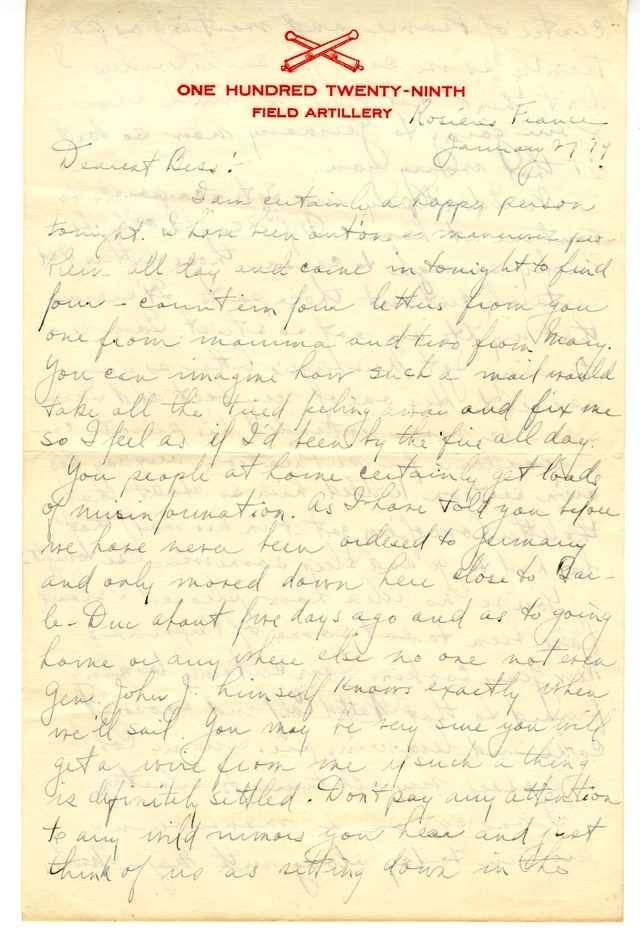 ONE HUNDRED TWENTY-NINTH
FIELD ARTILLERY
Rosieres France
January 27 19
Dearest Bess:-
I am certainly a happy person
tonight. I have been out on a maneuver prob-
lem all day and came in tonight to find
four - count em four letters from you
one from mamma and two from Mary.
You can imagine how such a mail would
take all the tired feeling away and fix me
so I feel as if I'd been by the fire all day.
You people at home certainly get loads
of misinformation. As I have told you before
we have never been ordered to Germany
and only moved down here close to Bar-
le-Duc about five days ago and as to going
home or any where else no one not even
Gen. John J. himself knows exactly when
we'll sail. You may be very sure you will
get a wire from me if such a thing
is definitely settled. Don't pay any attention
to any wild rumors you hear and just
think of us as sitting down in the